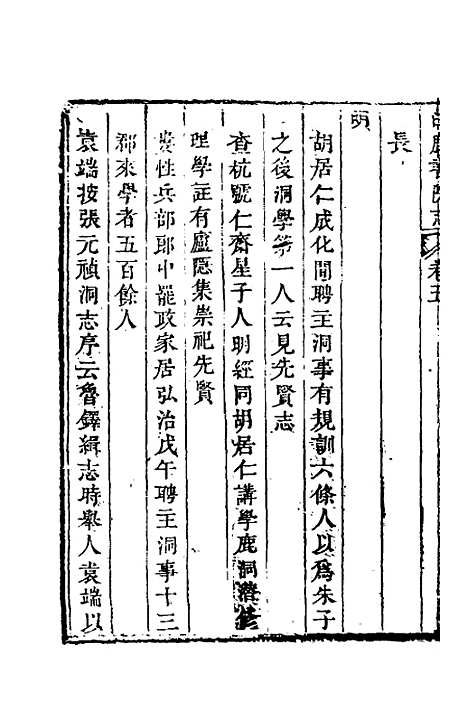 白鹿書院志 卷五
長
明
胡居仁成化間聘主洞事有規訓六條人以爲朱子
之後洞學第一人云見先賢志
查杭號仁齋星子人明經同胡居仁講學鹿洞潛修
理學註有廬隐集崇祀先賢
婁性兵部郎中罷政家居弘治戊午聘主洞事十三
郡來學者五百餘人
袁端按張元禎洞志序云魯鐸緝志時舉人袁端以